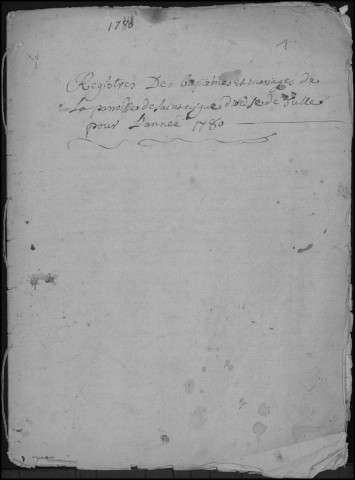 1780
1
Registres Des baptêmes et mariages de
La paroisse de Saint cirgue Diocese de Tulle
pour L'année 1780